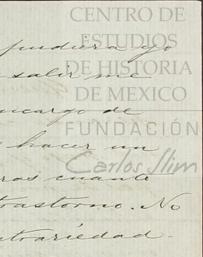 CENTRO DE
ESTUDIOS
DE HISTORIA
DE MEXICO
FUNDACIÓN
Carlos Slim
pudiera yo
salir me
encargo de
hacer un
cuanto
trastorno. No
contrariedad.